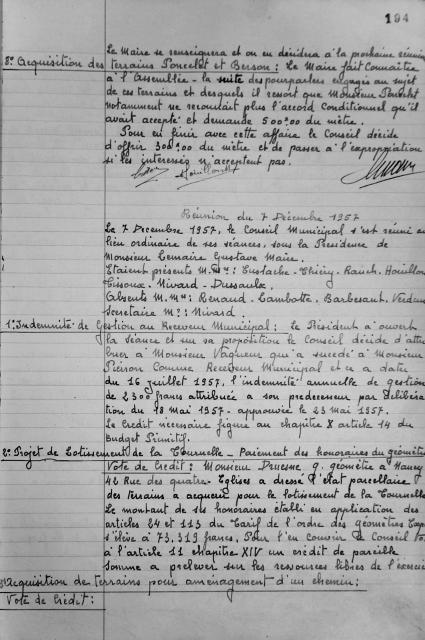 194
Le Maire se renseignera et on en décidera à la prochaine réunion
8° Acquisition des terrains Poncelet et Berson : Le Maire fait connaître
à l'Assemblée - la suite des pourparlers engagés au sujet
de ces terrains et desquels il ressort que Monsieur
notamment ne reconnait plus l'accord conditionnel qu'il
avait accepté et demande 500°00 du mètre.
Pour en finir avec cette affaire le Conseil décide
d'offrir 300°00 du mètre et de passer à l'expropriation
si les interessés n'acceptent pas.
Réunion du 7 Décembre 1957
Le 7 Decembre 1957, le Conseil Municipal s'est réuni au
lieu ordinaire de ses séances, sous la Presidence de
Monsieur Lemaire Gustave Maire.
Etaient présents M.M" : Eustache - Thiéry - Rauch - Houillon
Cisoux - Nivard - Dussaulx.
Absents M.M" : Renaud - Lambotte. Barbesant.
Secretaire Mr : Nivard.
1° Indemnité de Gestion au Receveur Municipal : Le Président a ouvert
la séance et sur sa proposition le Conseil décide d'attri
buer à Monsieur qui a succédé à Monsieur
Pierson Comme Receveur Municipal et ce a dater
du 16 juillet 1957, l'indemnité annuelle de gestion
de 2300 francs attribuée a son predecesseur par deliběra
tion du 18 Mai 1957 - approuvée le 23 Mai 1957.
Le Crédit nécessaire figure au chapitre X article 14 du
Budget Primitif.
2° Projet de Lotissement de la Tournelle - Paiement des honoraires du géomètre
Vote de Crédit : Monsieur géomètre à Nancy
42 Rue des quatre - Eglises a dressé l'état parcellaire
des terrains a acquerir pour le lotissement de la Tournelle
Le montant de ses honoraires établi en application des
articles 24 et 113 du Tarif de l'ordre des géomètres Exp
s'élève à 73,319 francs. Pour l'en couvrir le Conseil vo
à l'article 11 chapitre XIV un crédit de pareille
somme a prelever sur les ressources libres de l'exercice
3° Acquisition de terrains pour aménagement d'un chemin :
Vote de Crédit :